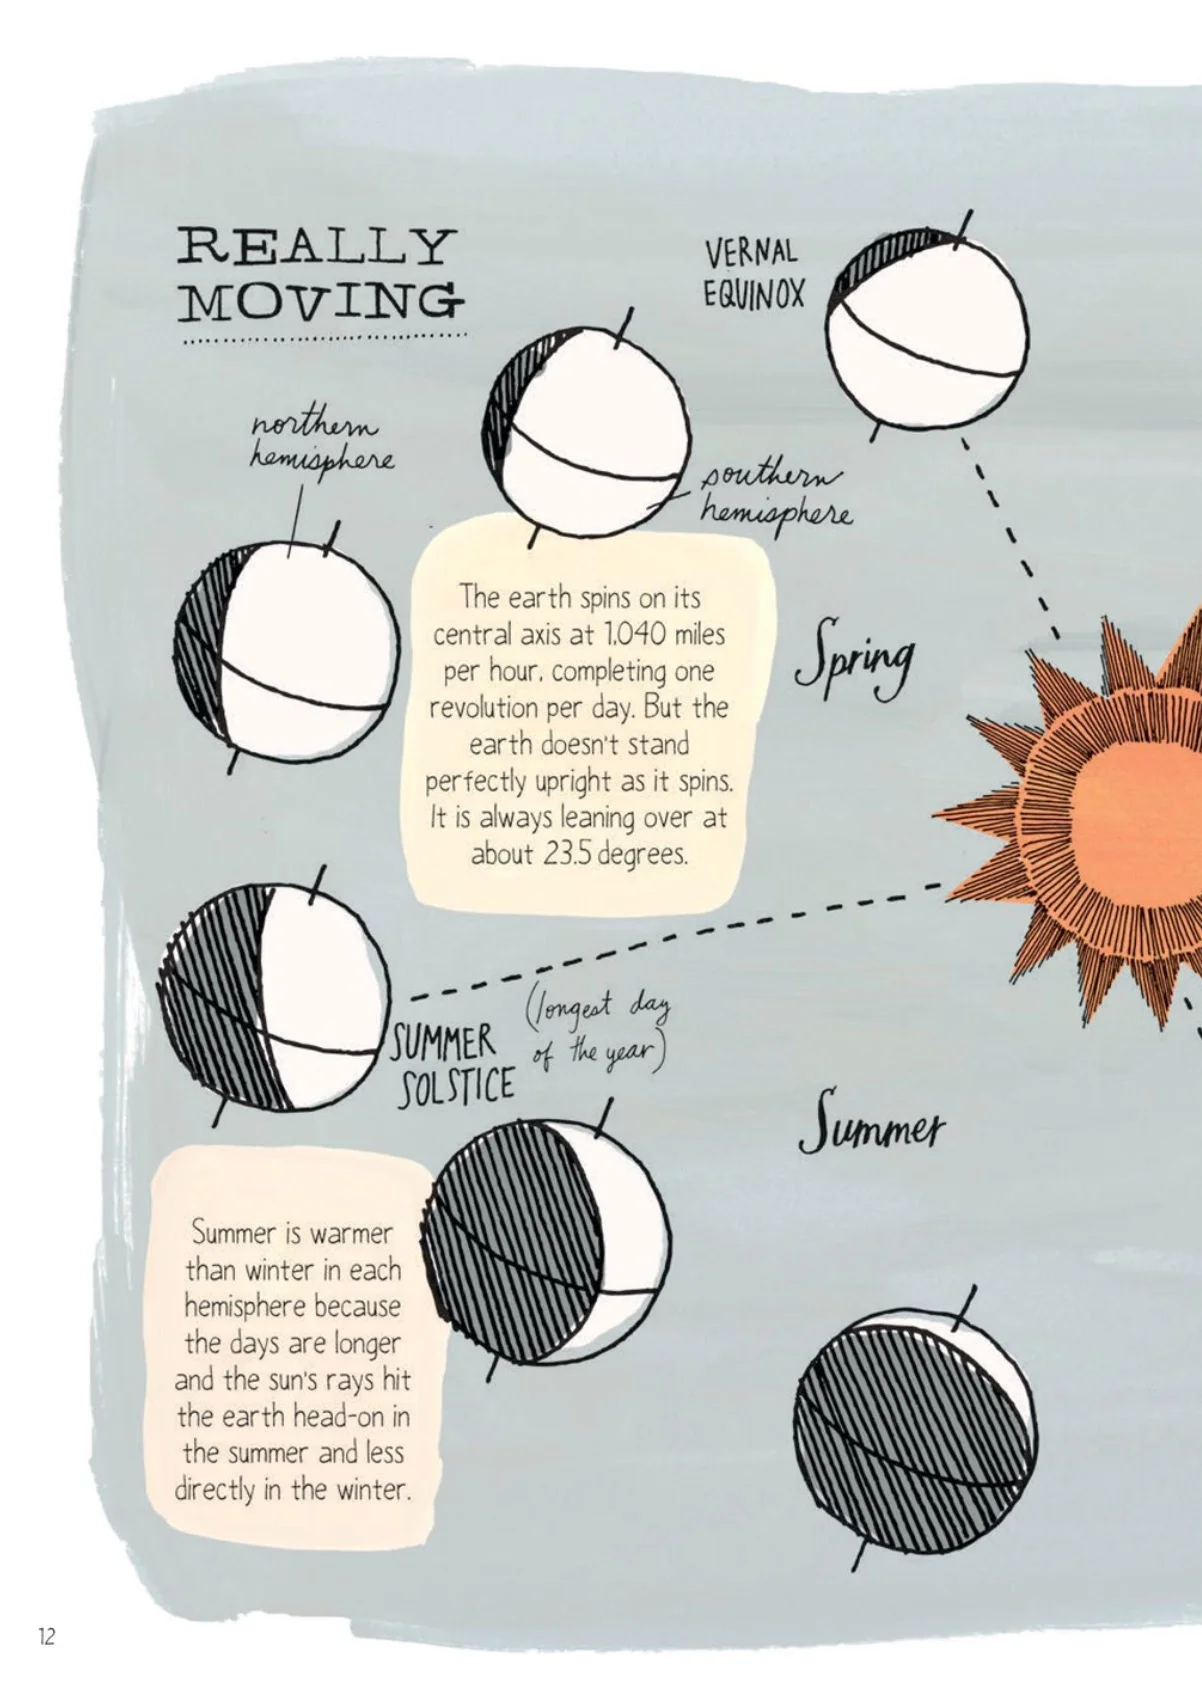 REALLY
MOVING
VERNAL
EQUINOX
northern
hemisphere
southern
hemisphere
The earth spins on its
central axis at 1,040 miles
per hour, completing one
revolution per day. But the
earth doesn't stand
perfectly upright as it spins.
It is always leaning over at
about 23.5 degrees.
Spring
SUMMER
SOLSTICE
(longest day
of the year)
Summer
Summer is warmer
than winter in each
hemisphere because
the days are longer
and the sun's rays hit
the earth head-on in
the summer and less
directly in the winter.
12